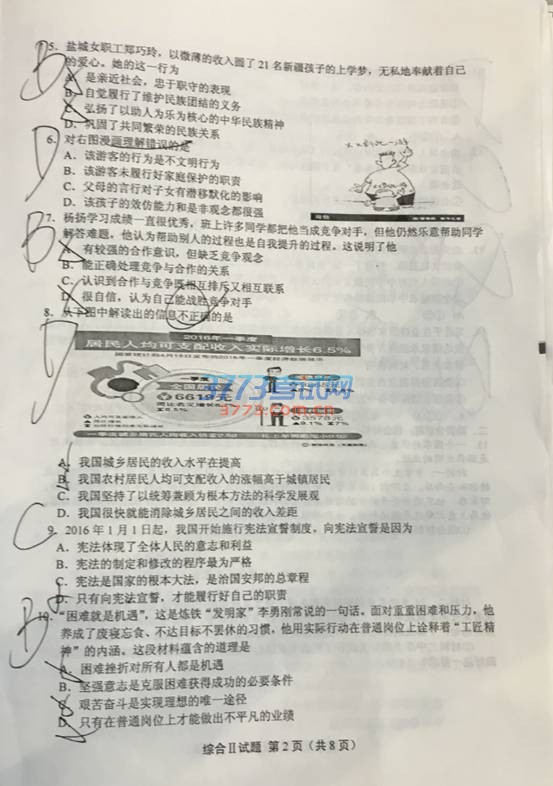 B
5、盐城女职工郑巧玲，以微薄的收入圆了21名新疆孩子的上学梦，无私地奉献着自己
的爱心。她的这一行为
A．是亲近社会，忠于职守的表现
B．自觉履行了维护民族团结的义务
C．弘扬了以助人为乐为核心的中华民族精神
D．巩固了共同繁荣的民族关系
D
6、对右图漫画理解错误的是
A．该游客的行为是不文明行为
B．该游客未履行好家庭保护的职责
C．父母的言行对子女有潜移默化的影响
D．该孩子的效仿能力和是非观念都很强
B
7、杨扬学习成绩一直很优秀，班上许多同学都把他当成竞争对手，但他仍然乐意帮助同学
解答难题，他认为帮助别人的过程也是自我提升的过程。这说明了他
A．有较强的合作意识，但缺乏竞争观念
B．能正确处理竞争与合作的关系
C．认识到合作与竞争既相互排斥又相互联系
D．很自信，认为自己能战胜竞争对手
D
8、从下图中解读出的信息不正确的是
2016年一季度
居民人均可支配收入实际增长6.5%
一季度
全国居民
6619元
3578元
9.1% 7%
3773考试网
3773.com.cn
A．我国城乡居民的收入水平在提高
B．我国农村居民人均可支配收入的涨幅高于城镇居民
C．我国坚持了以统筹兼顾为根本方法的科学发展观
D．我国很快就能消除城乡居民之间的收入差距
C
9、2016年1月1日起，我国开始施行宪法宣誓制度，向宪法宣誓是因为
A．宪法体现了全体人民的意志和利益
B．宪法的制定和修改的程序最为严格
C．宪法是国家的根本大法，是治国安邦的总章程
D．只有向宪法宣誓，才能履行好自己的职责
B
10、“困难就是机遇”，这是炼铁“发明家”李勇刚常说的一句话。面对重重困难和压力，他
养成了废寝忘食、不达目标不罢休的习惯，他用实际行动在普通岗位上诠释着“工匠精
神”的内涵。这段材料蕴含的道理是
A．困难挫折对所有人都是机遇
B．坚强意志是克服困难获得成功的必要条件
C．艰苦奋斗是实现理想的唯一途径
D．只有在普通岗位上才能做出不平凡的业绩
综合Ⅱ试题 第2页（共8页）